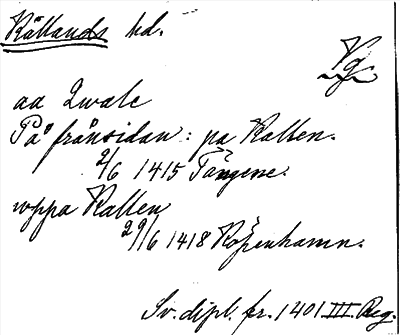 Kållands hd.
Vg
aa Qwalc
På frånsidan: pa Kallen.
2/6 1415 Tångene.
wppa Kallen
29/6 1418 Köpenhamn.
Sv. dipl. fr. 1401 III. Reg.